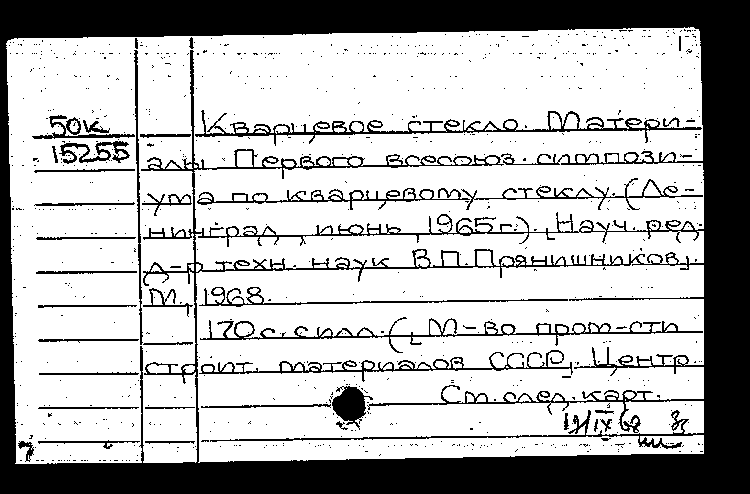 50к Кварцевое стекло. Матери-
15255 алы Первого всесоюз. симпози-
ума по кварцевому стеклу. (Ле-
нинград, июнь, 1965г.). [Науч. ред.
д-р техн. наук В.П.Прянишников].
М., 1968.
170с. с илл. ([М-во пром-сти
строит. материалов СССР]. Центр.
См. след. карт.
19/IX 68